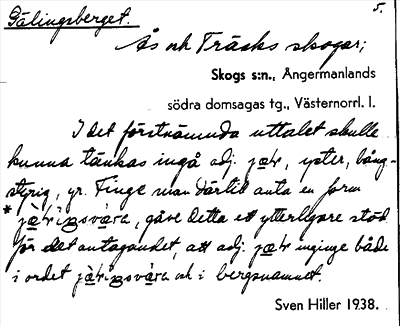 Gälingsberget. 5.
Ås och Träsks skogar;
Skogs s:n., Ångermanlands
södra domsagas tg., Västernorrl. l.
I det förstnämnda uttalet skulle
kunna tänkas ingå adj. jær, yster, bång-
styrig, yr. Finge man därtill anta en form
* jæringsvära, gåve detta ett ytterligare stöd
för det antagandet, att adj. jær inginge både
i ordet jæringsvära och i bergnamnet.
Sven Hiller 1938.